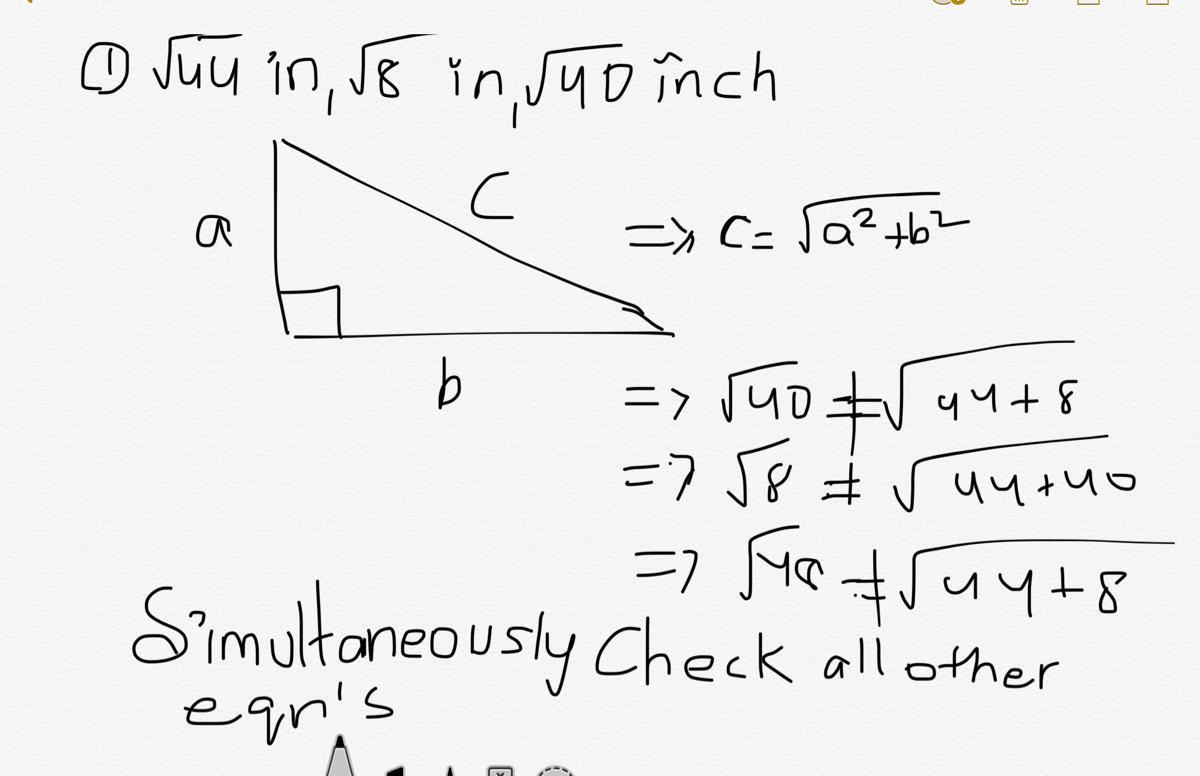 ① √44 in, √8 in, √40 inch
a
C
=> C = √a²+b²
b
=> √40 ≠ √44+8
=> √8 ≠ √44+40
=> √40 ≠ √44+8
Simultaneously Check all other
eqn's